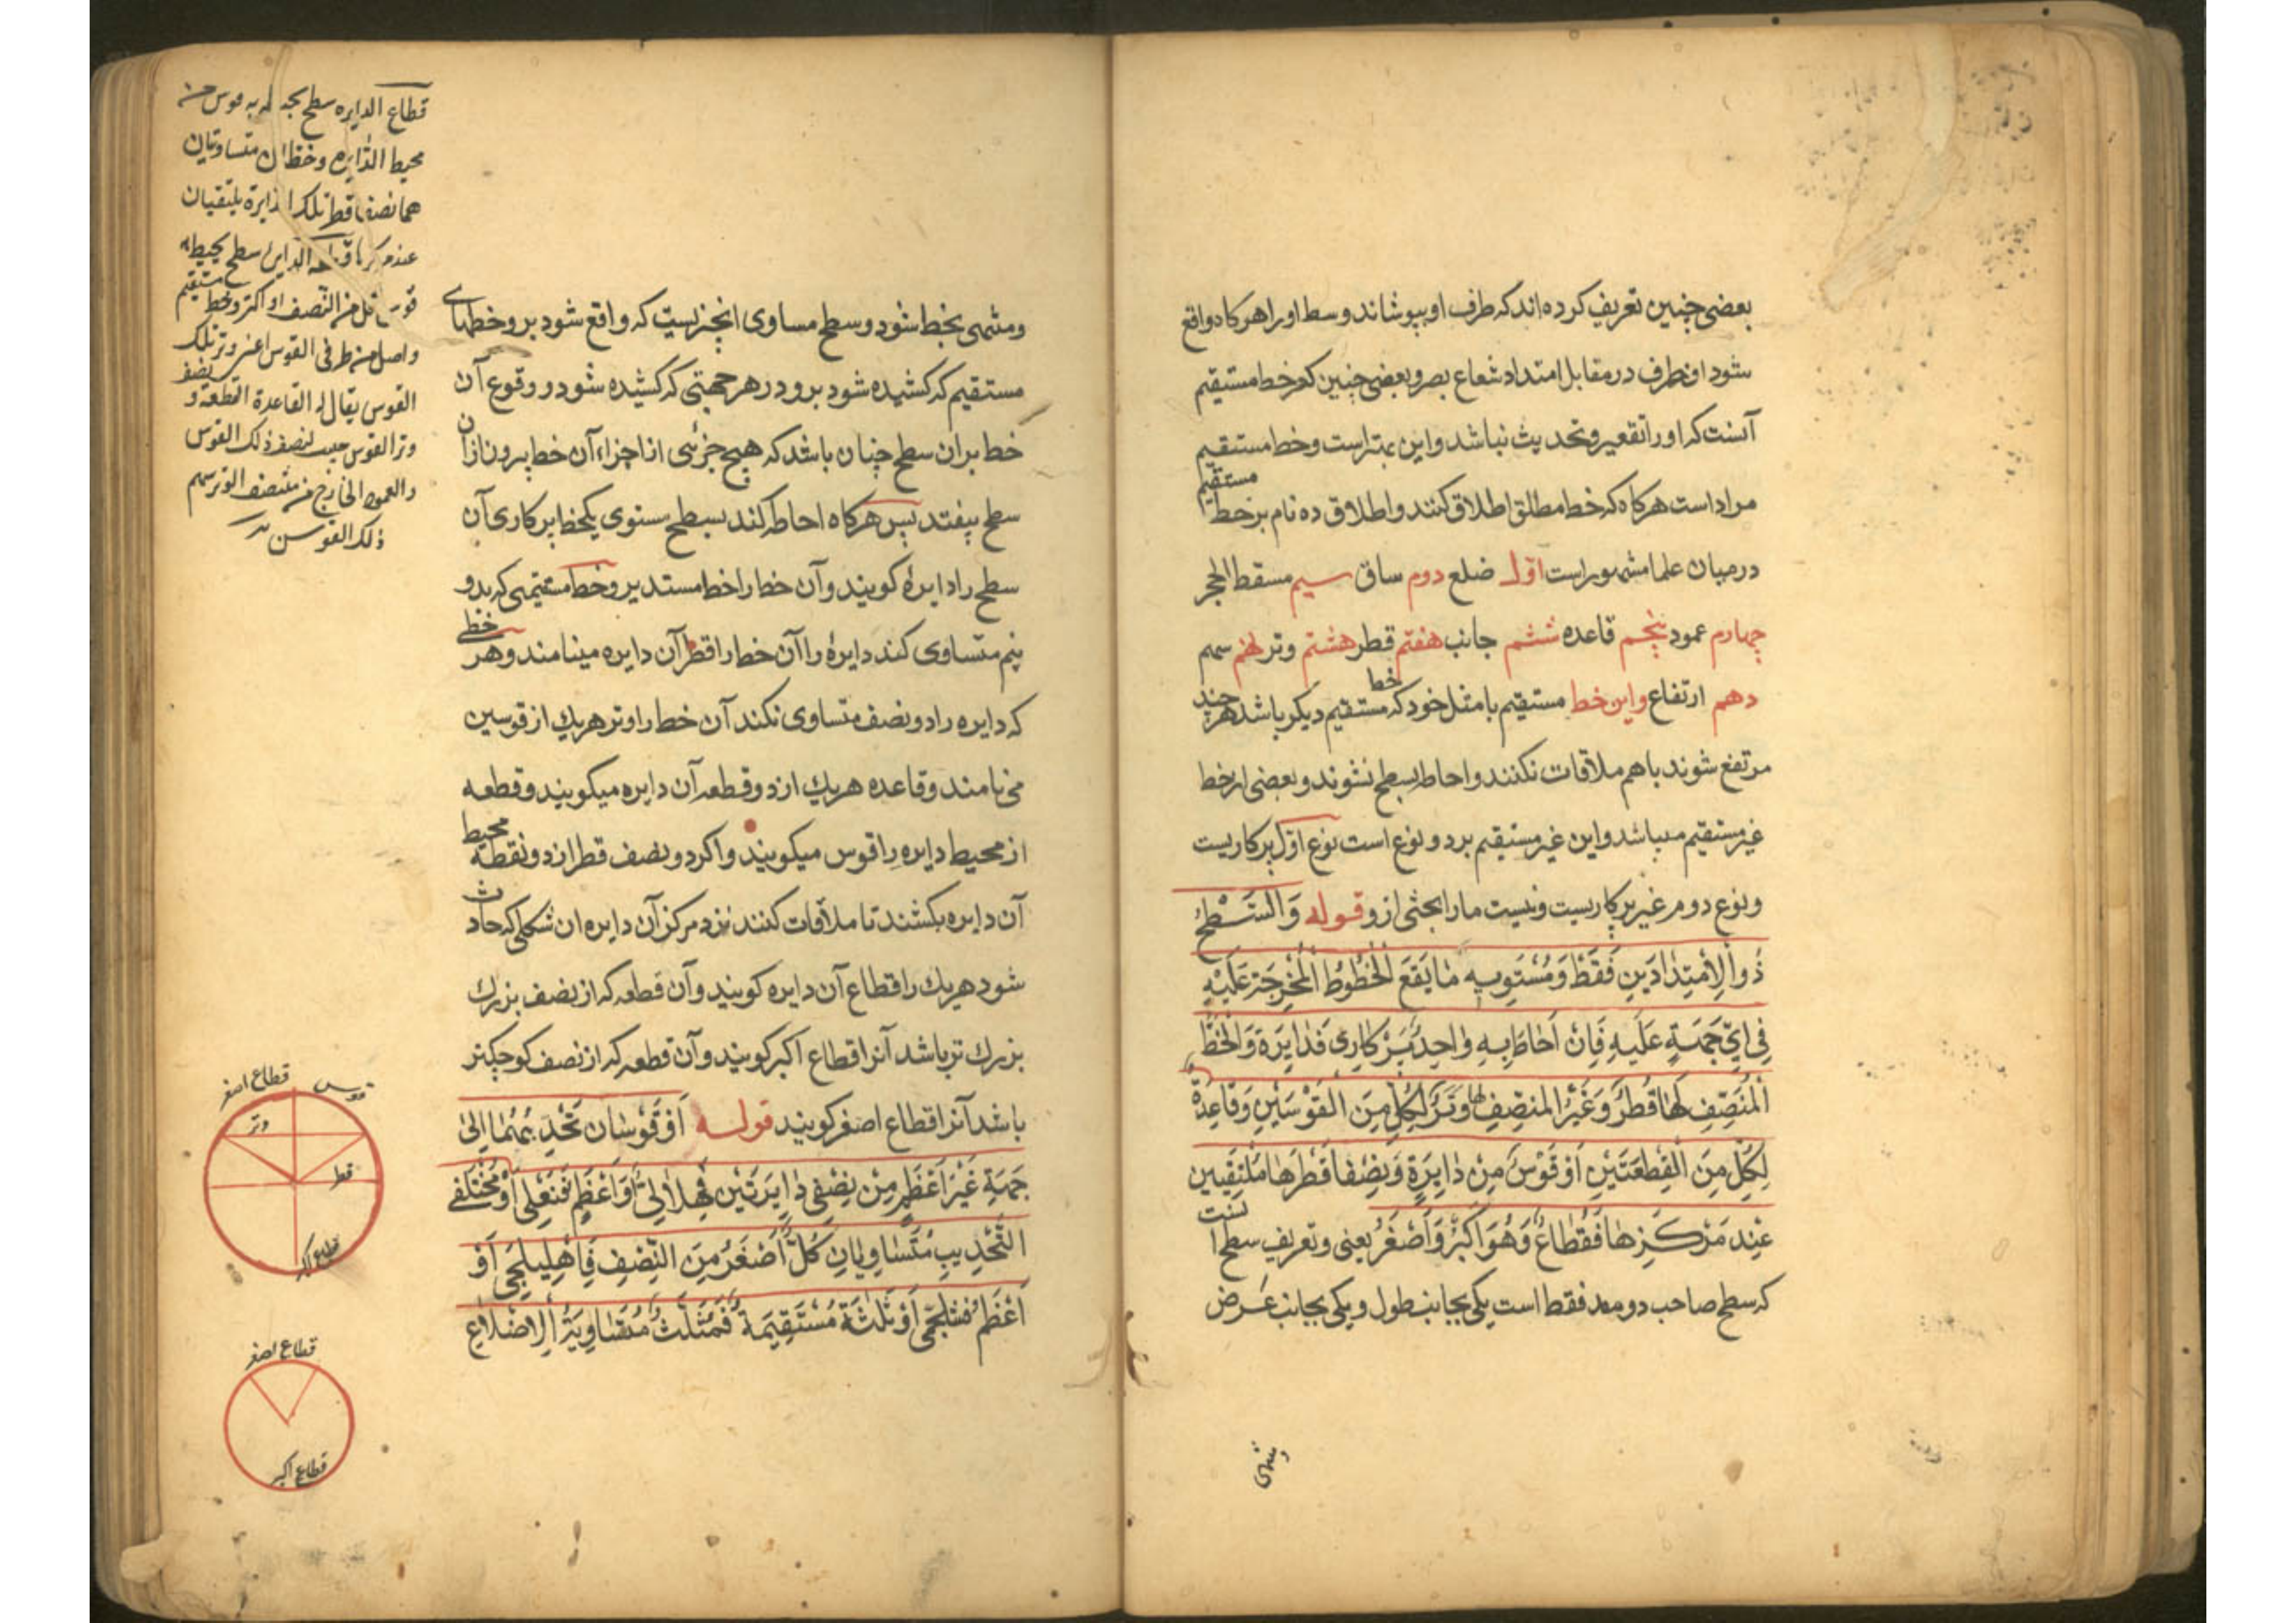 بعضی چنین تعریف کرده‌اند که طرف او بپوشاند وسط او را هرکاه واقع
شود ان طرف در مقابل امتداد شعاع بصر و بعضی چنین که خط مستقیم
آنست که او را تقعیر و تحدیث نباشد و این بهتر است و خط مستقیم
مراد است هرکاه که خط مطلق اطلاق کنند و اطلاق ده نام بر خط مستقیم
در میان علما مشهور است اوّل ضلع دوم ساق سیم مسقط الحجر
چهارم عمود پنجم قاعده ششم جانب هفتم قطر هشتم وتر نهم سهم
دهم ارتفاع و این خط مستقیم با مثل خود که خط مستقیم دیکر باشد هرچند
مرتفع شوند با هم ملاقات نکنند و احاطه بسطح نشوند و بعضی از خط
غیر مستقیم میباشد و این غیر مستقیم بر دو نوع است نوع اوّل پرکاریست
و نوع دوم غیر پرکاریست و نیست ما را بحثی ازو قوله وَالسَّطْحُ
ذُو الْاِمْتِدَادَیْنِ فَقَطْ وَمُسْتَوِیهِ مَا یَقَعُ الْخُطُوطُ الْمُخْرَجَةُ عَلَیْهِ
فِی اَیِّ جَهَةٍ عَلَیْهِ فَاِنْ اَحَاطَ بِهِ وَاحِدٌ پَرْکَارِی فَدَایِرَةٌ وَالْخَطُّ
الْمُنَصِّفُ لَهَا قُطْرٌ وَغَیْرُ المنصِّفِ لها وَتَرٌ لِکُلٍّ مِنَ الْقَوْسَیْنِ وَقَاعِدَةٌ
لِکُلٍّ مِنَ الْقِطْعَتَیْنِ اَوْ قَوْسٌ مِنْ دَایِرَةٍ وَنِصْفَا قُطْرِهَا مُلْتَقِیَیْنِ
عِنْدَ مَرْکَزِهَا فَقُطَاعٌ وَهُوَ اَکْبَرُ وَاَصْغَرُ یعنی و تعریف سطح اینست
که سطح صاحب دو مد فقط است یکی بجانب طول و یکی بجانب عَرض
و منتهی بخط شود و سطح مساوی انچنز یست که واقع شود برو خطهای
مستقیم که کشیده شود برو در هر جهتی که کشیده شود و وقوع آن
خط بران سطح چنان باشد که هیچ جزئی از اجزاء آن خط بیرون از ان
سطح بیفتد پس هرکاه احاطه کند بسطح مستوی یکخط پرکاری آن
سطح را دایره کویند و آن خط را خط مستدیر و خط مستقیمی که بدو
نیم متساوی کند دایرهٔ را آن خط را قطر آن دایره مینامند و هر خطی
که دایره را دو نصف متساوی نکند آن خط را وتر هریك از قوسین
می‌نامند و قاعده هریك از دو قطعه آن دایره میکویند و قطعه
از محیط دایره را قوس میکویند و اکر دو نصف قطر از دو نقطه محیط
آن دایره بکشند تا ملاقات کنند نزد مرکز آن دایره ان شکلی که حادث
شود هریك را قطاع آن دایره کویند و آن قطعه که از نصف بزرك
بزرك تر باشد آنرا قطاع اکبر کویند و آن قطعه که از نصف کوچکتر
باشد آنرا قطاع اصغر کویند قوله اَوْ قَوْسَانِ تَحْدِبُهُمَا اِلیٰ
جَهَةٍ غَیْرَ اَعْظَمِ مِنْ نِصْفَی دَایِرَتَیْنِ فَهِلَالِیٌّ اَوْ اَعْظَمِ فَنَعْلِی اَوْ مُخْتَلِفَی
التَّحْدِیبِ مُتَسَاوِیَانِ کُلٌّ اَصْغَرُ مِنَ النِّصْفِ فَاهْلِیلِجِی اَوْ
اَعْظَمُ فَشَلْجَمی اَوْ ثَلٰثَةٌ مُسْتَقِیمَةٌ فَمُثَلَّثٌ مُتَسَاوِیَةُ الْاَضْلَاعِ
قطاع الدایره سطح یحیط به قوس من
محیط الدّایره وخطان متساویان
هما نصفا قطر تلك الدایرة یلتقیان
عند مرکزها قطعة الدایره سطح یحیط به
قوس اقل من النّصف او اکثر وخط مستقیم
واصل من طرفی القوس اعنی وتر تلك
القوس یقال له القاعدة القطعة و نصف
وتر القوس جیب لنصف ذلك القوس
والعمود الخارج من منتصف الوتر سهم
ذلك القوس
قطاع اصغر
قوس
وتر
قطر
قطاع اکبر
قطاع اصغر
قطاع اکبر